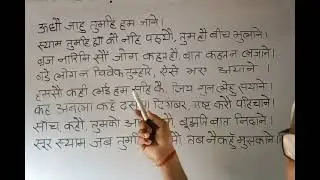 ऊधौ जाहु तुमहिं हम जाने।
स्याम तुमहिं ह्याँ कौ नहिं पठयौ, तुम हौ बीच भुलाने।
बृज नारिनि सौं जोग कहत हौ, बात कहत न लजाने।
बड़े लोग न विवेक तुम्हारे, ऐसे भए अयाने।
हमसौं कही लई हम सहि कै, जिय गुन लेहु सयाने।
कहँ अबला कहँ दसा दिगंबर, मष्ट करौ पहिचाने।
साँच कहौ तुमकौ बूझति बात निदाने।
सूर स्याम जब तुमहिं तब नैकहुँ मुसकाने।